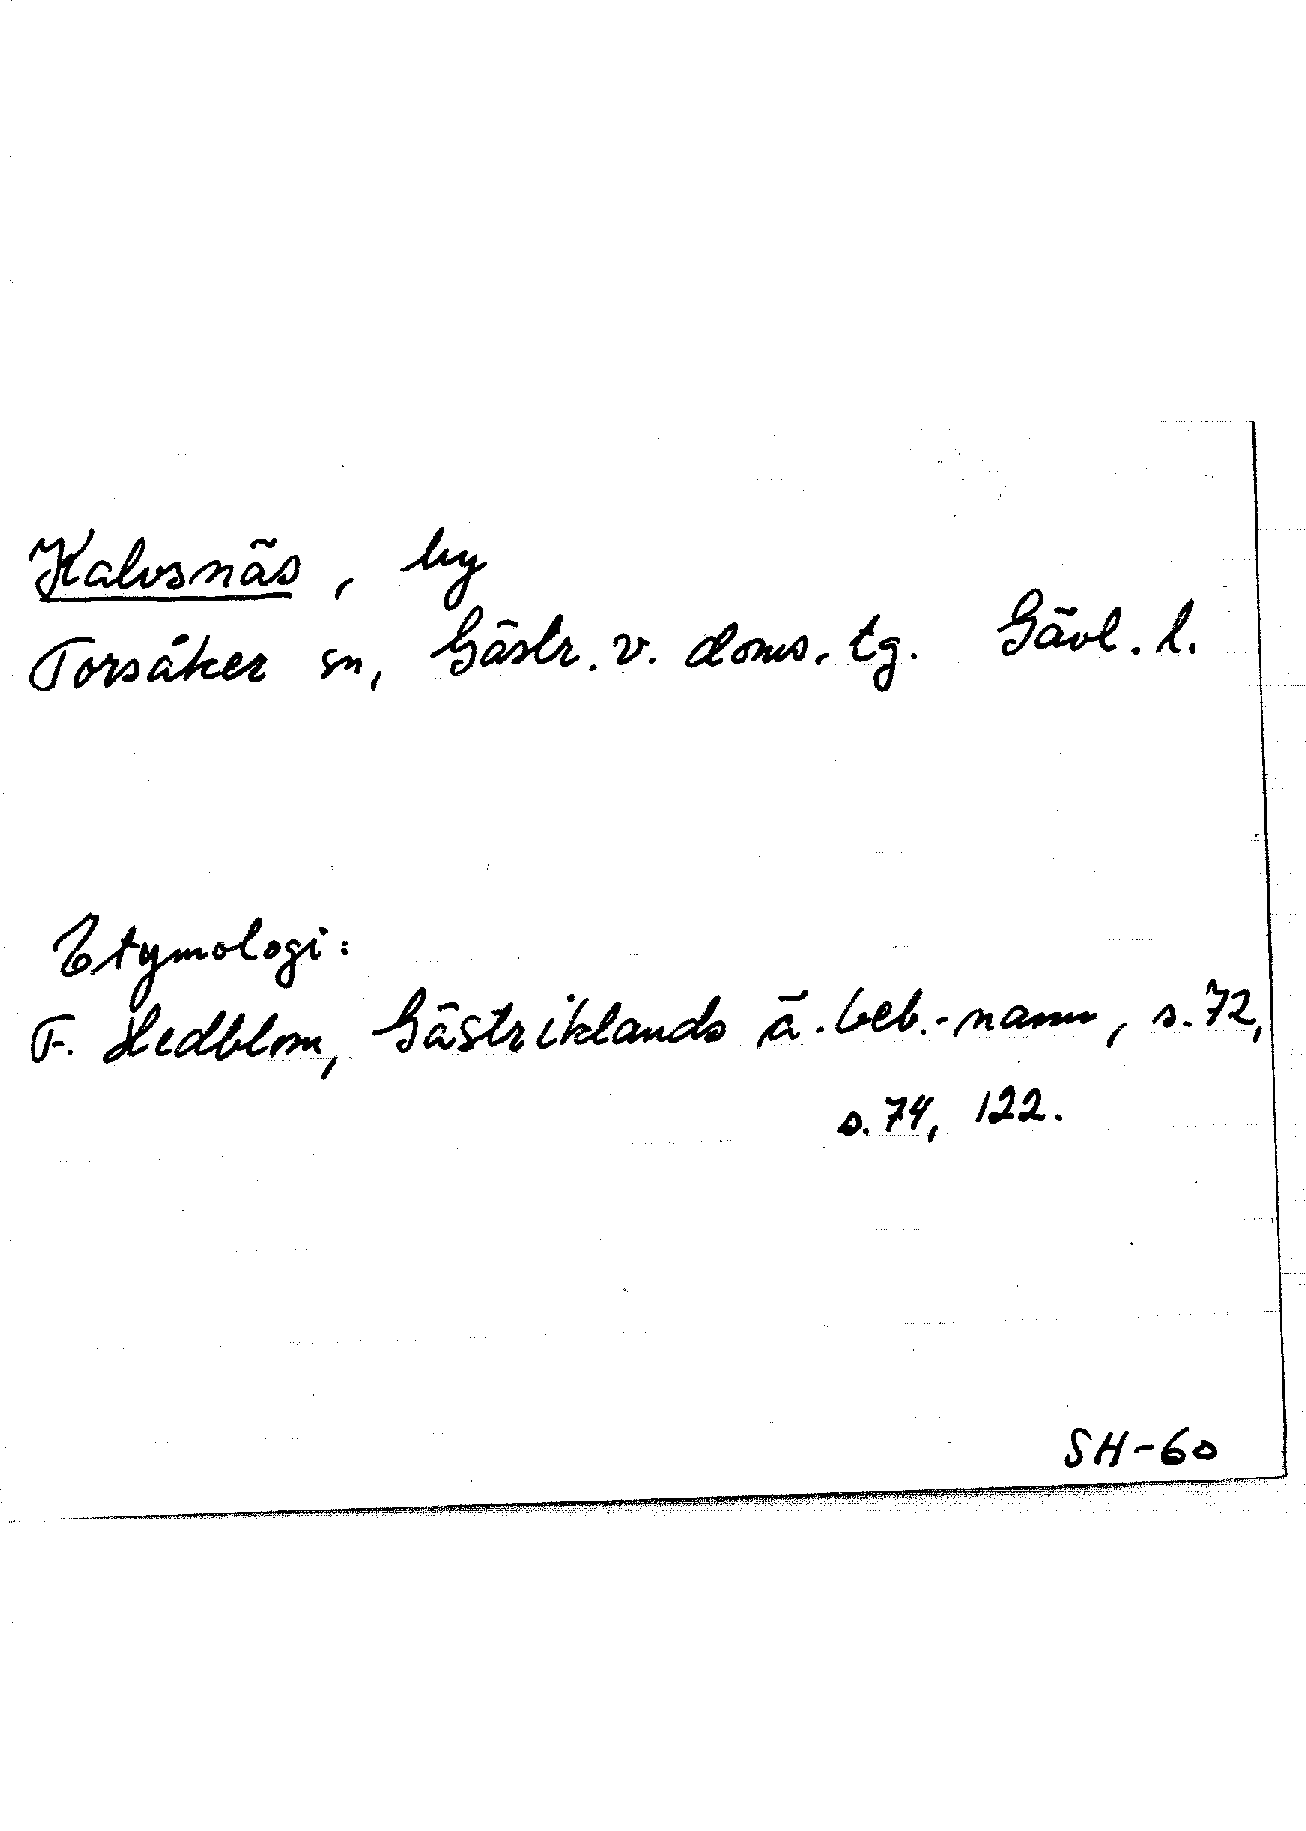 Kalvsnäs, by
Torsåker sn, Gästr. v. doms. tg. Gävl. l.
Etymologi:
F. Hedblom, Gästriklands ä. beb.-namn, s. 72,
s. 74, 122.
SH-60